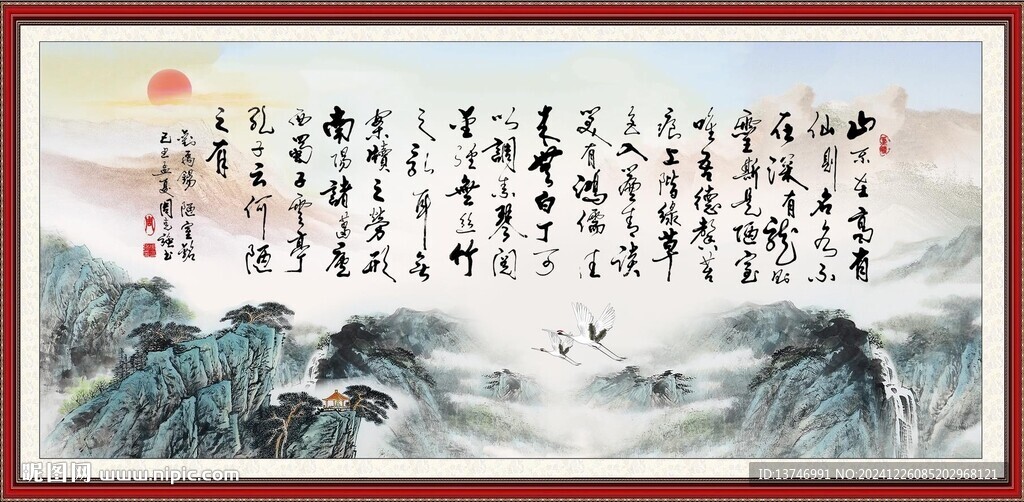 山不在高有
仙則名水不
在深有龍則
靈斯是陋室
唯吾德馨苔
痕上階緑草
色入簾青談
笑有鴻儒往
来無白丁可
以調素琴閲
金經無絲竹
之亂耳無
案牘之勞形
南陽諸葛廬
西蜀子雲亭
孔子云何陋
之有
劉禹錫 陋室銘
己丑孟夏周
昵图网 www.nipic.com
ID:13746991 NO:20241226085202968121